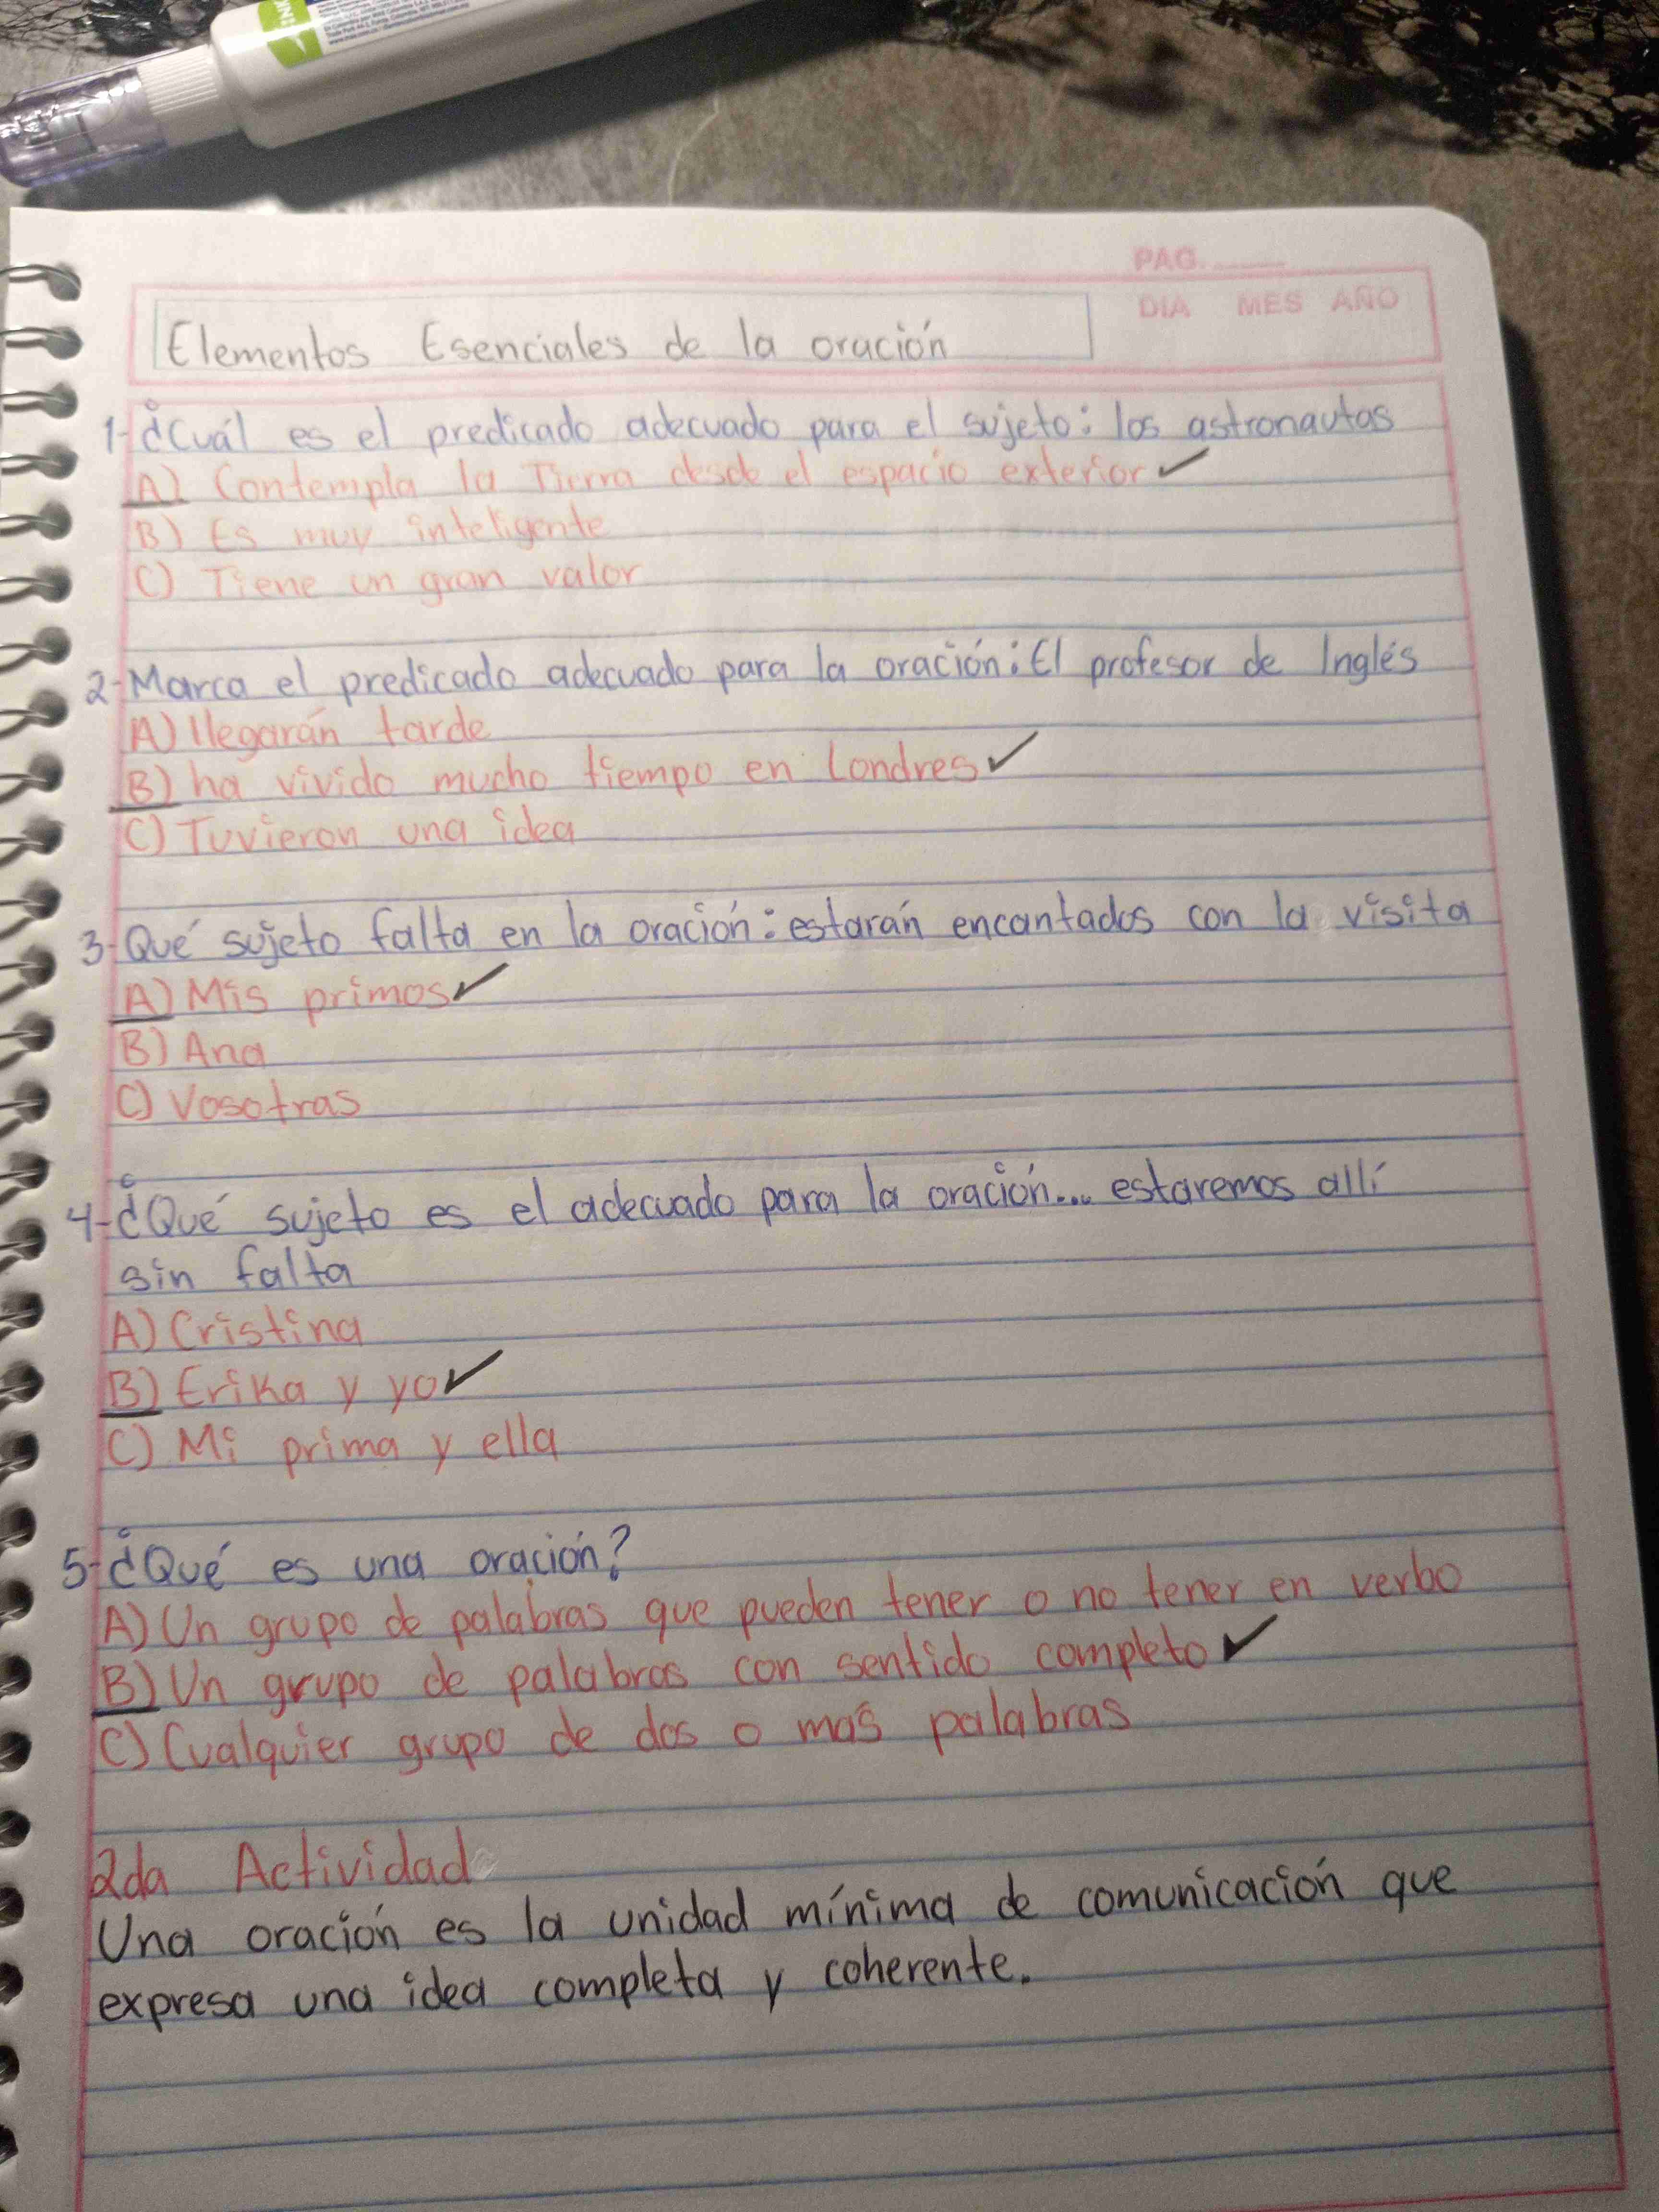 PAG.
DIA MES AÑO
Elementos Esenciales de la oración
1- ¿Cuál es el predicado adecuado para el sujeto: los astronautas
A) Contempla la Tierra desde el espacio exterior ✓
B) Es muy inteligente
C) Tiene un gran valor
2- Marca el predicado adecuado para la oración: El profesor de Inglés
A) llegarán tarde
B) ha vivido mucho tiempo en Londres ✓
C) Tuvieron una idea
3- Qué sujeto falta en la oración: estarán encantados con la visita
A) Mis primos ✓
B) Ana
C) Vosotras
4- ¿Qué sujeto es el adecuado para la oración... estaremos allí
sin falta
A) Cristina
B) Erika y yo ✓
C) Mi prima y ella
5- ¿Qué es una oración?
A) Un grupo de palabras que pueden tener o no tener en verbo
B) Un grupo de palabras con sentido completo ✓
C) Cualquier grupo de dos o mas palabras
2da Actividad
Una oración es la unidad mínima de comunicación que
expresa una idea completa y coherente.